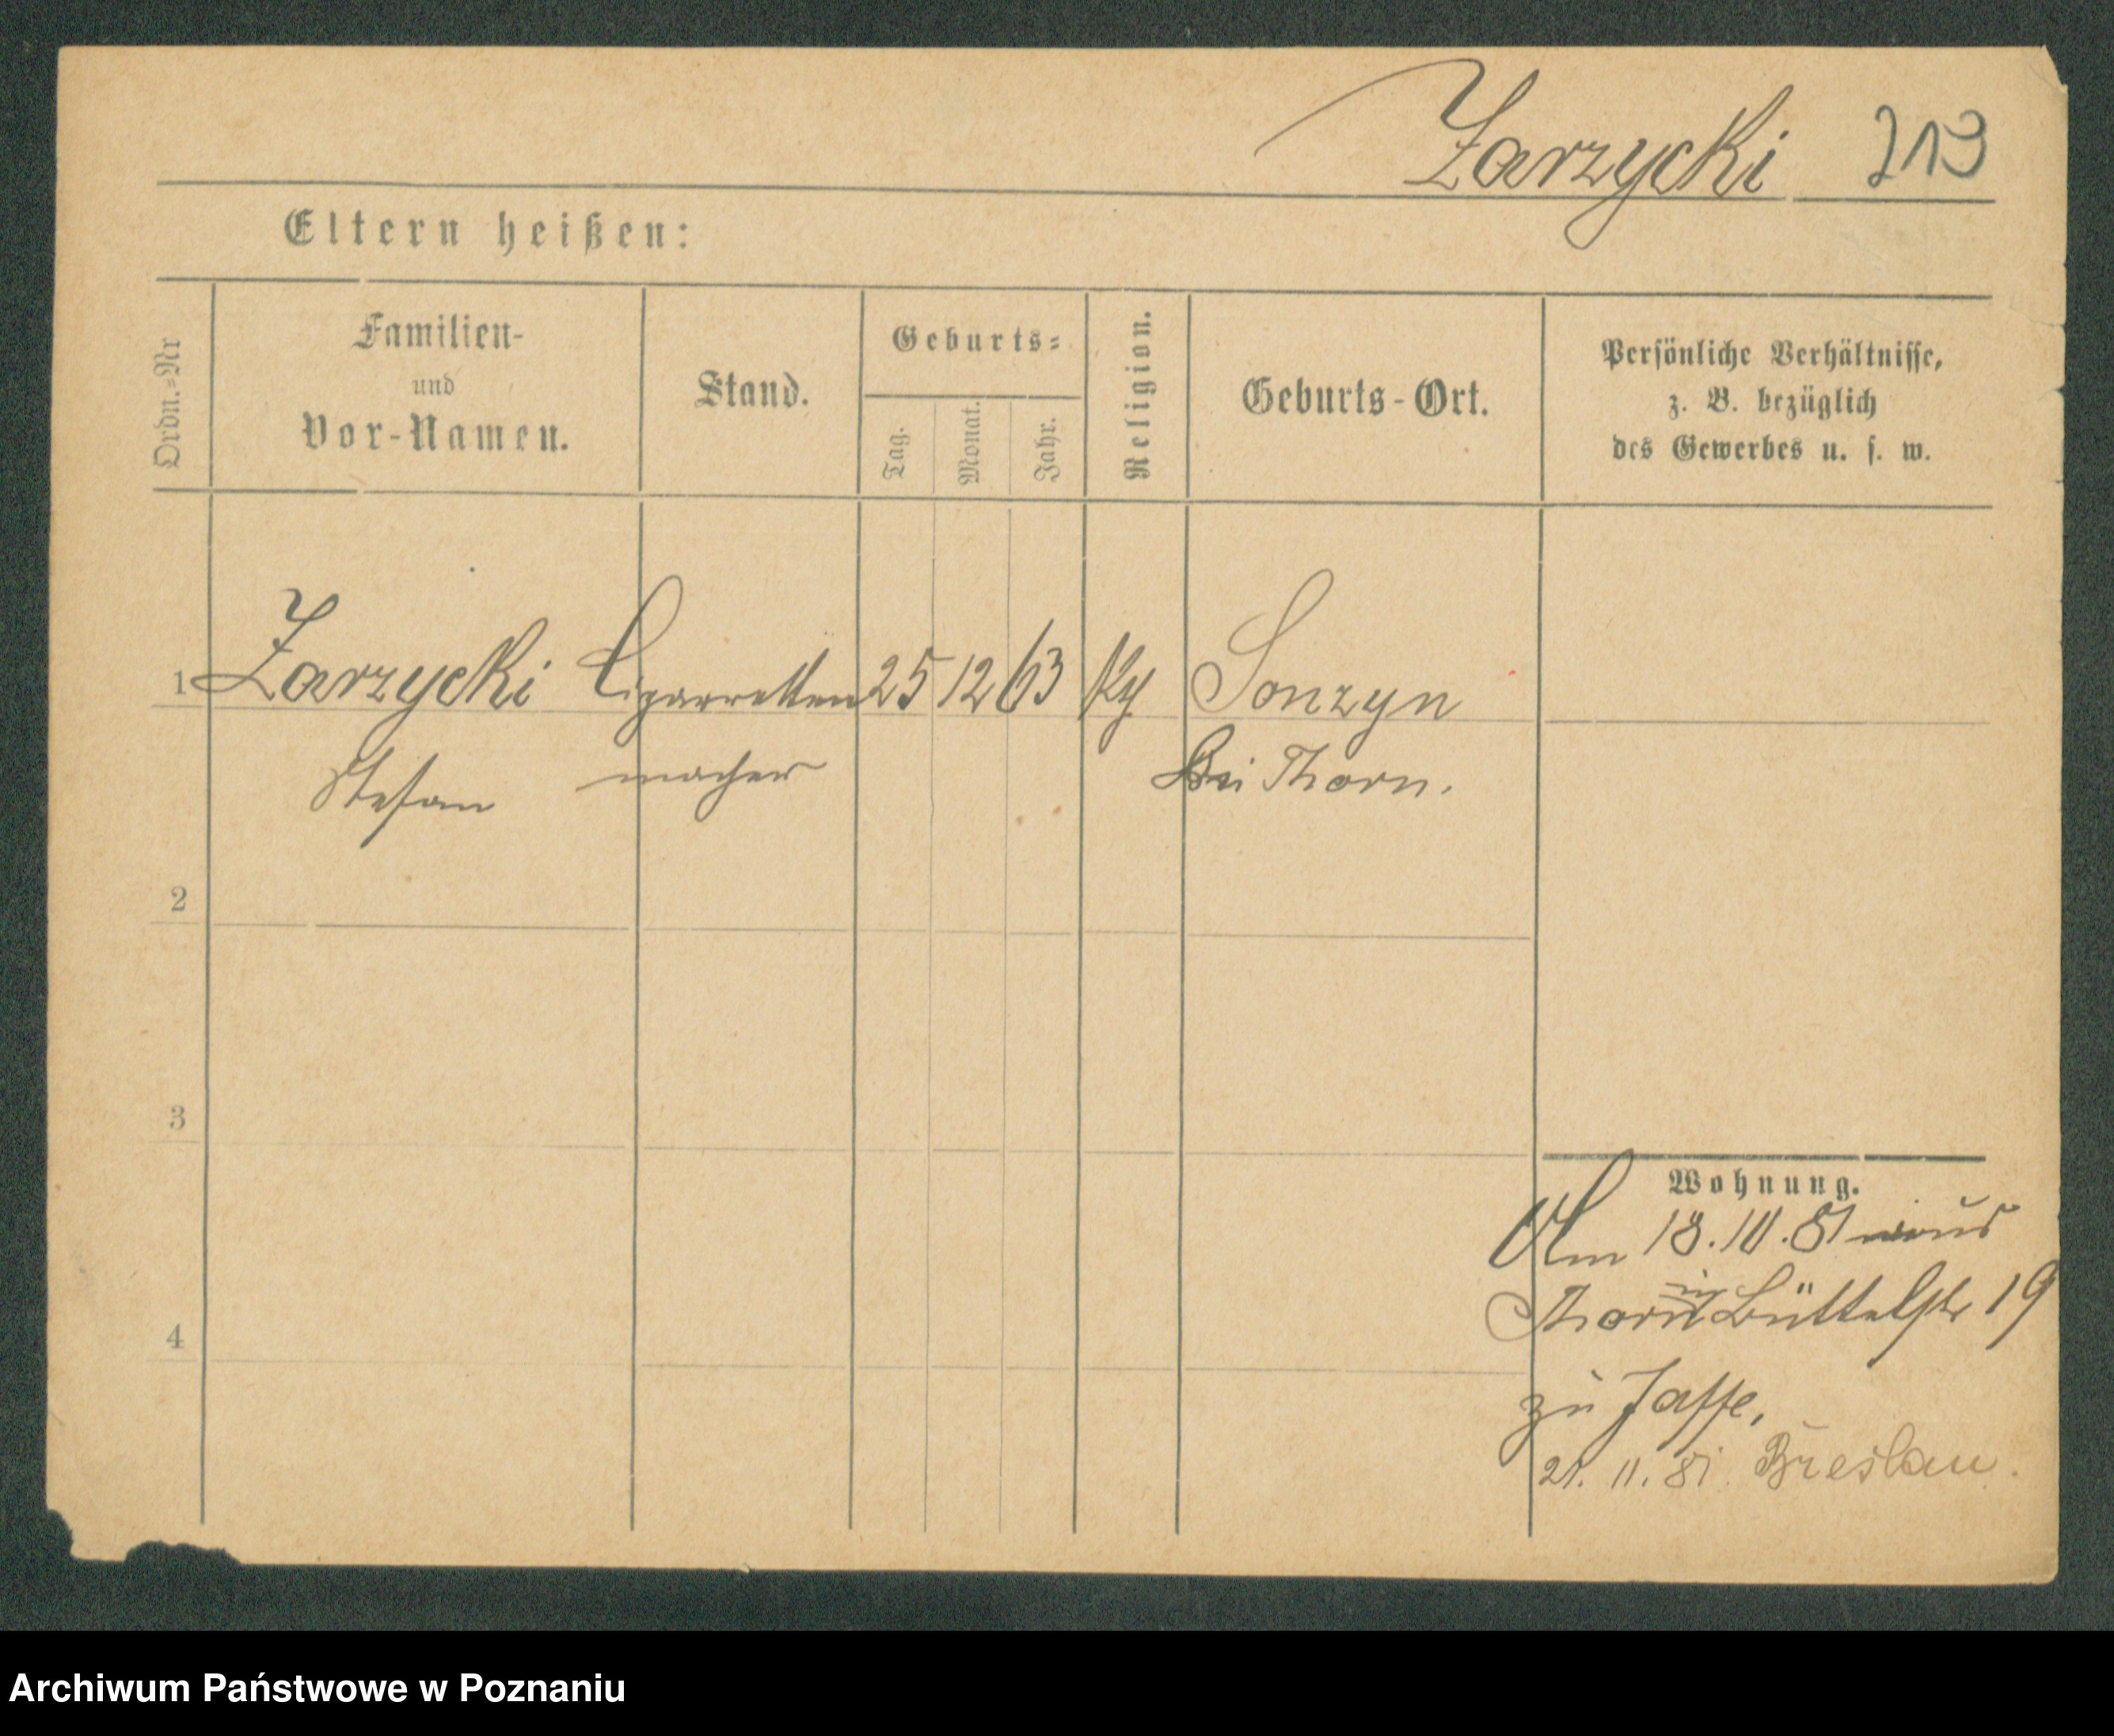 Zarzycki 213
Eltern heißen:
Ordn.=Nr
Familien-
und
Vor-Namen.
Stand.
Geburts=
Tag.
Monat.
Jahr.
Religion.
Geburts-Ort.
Persönliche Verhältnisse,
z. B. bezüglich
des Gewerbes u. s. w.
1 Zarzycki Cigarretten 25 12 63 Sonzyn
Stefan macher bei Thorn.
2
3
4
Wohnung.
Am 18. 10. 81 aus
Thorn in Büttelstr 19
zu Jaffe,
21. 11. 81. Breslau.
Archiwum Państwowe w Poznaniu